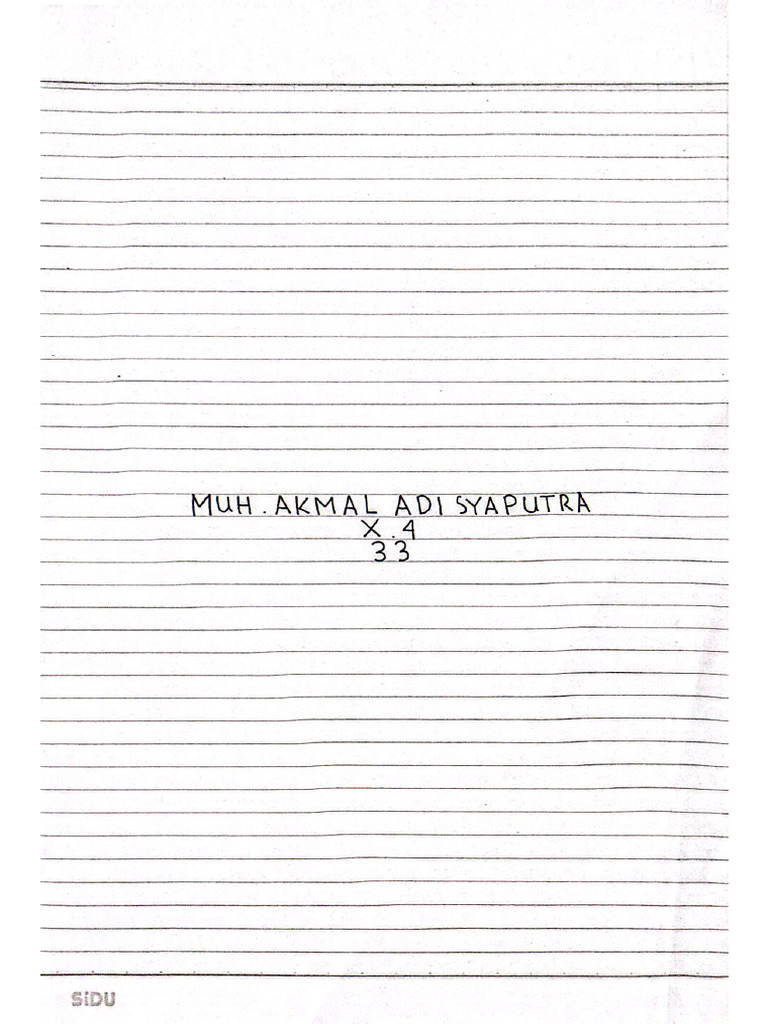 MUH. AKMAL ADI SYAPUTRA
X.4
33
SiDU